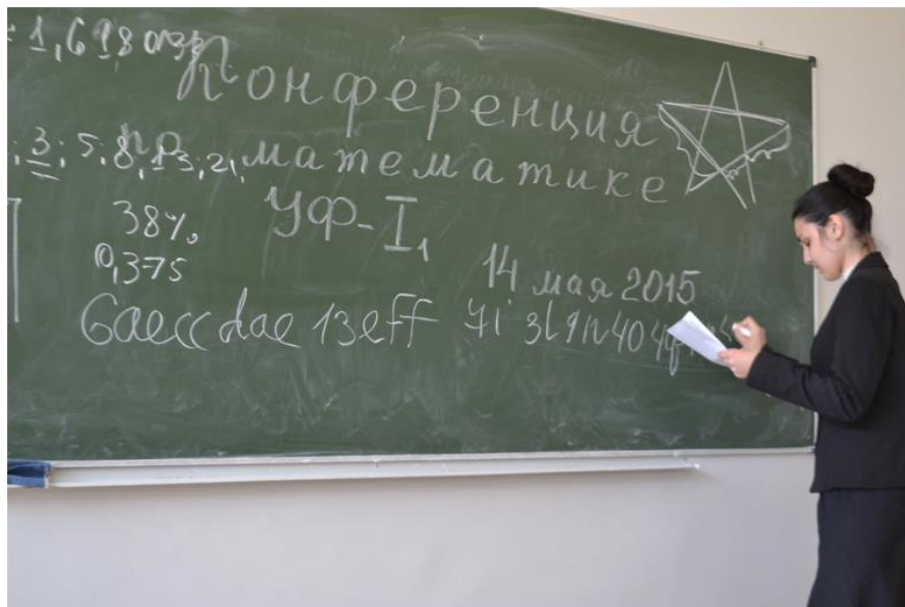 1,618033
Конференция
; 3; 5; 8, 13; 21, по математике
38%
УФ-I,
0,375
14 мая 2015
6aeccdae 13eff 7i 3l 9n 4o 4q